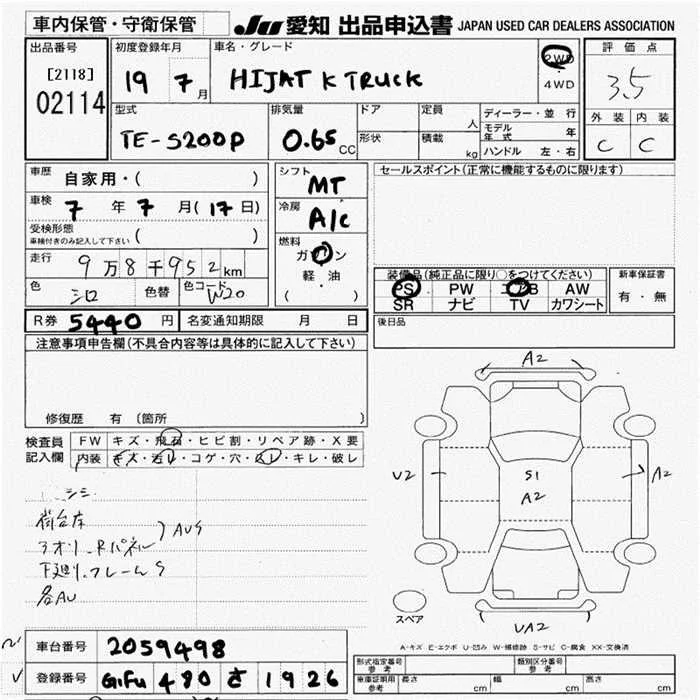 車内保管・守衛保管 JU 愛知 出品申込書 JAPAN USED CAR DEALERS ASSOCIATION
出品番号 初度登録年月 車名・グレード 評価点
[2118] 02114
19 7月 HIJAT K TRUCK 2WD 4WD 3.5
型式 排気量 ドア 定員 人 ディーラー・並行 外装 内装
TE-S200P 0.65 CC 形状 積載 kg モデル年式 年 C C
ハンドル 左・右
車歴 自家用・( ) シフト MT セールスポイント(正常に機能するものに限ります)
車検 7年 7月(17日) 冷房 A/C
受検形態 車検付きのみ記入して下さい ( )
走行 9万8千952km 燃料 ガソリン 軽・油 ( )
色 シロ 色替 色コード W20
装備品(純正品に限り○をつけてください) 新車保証書
PS PW エアB AW 有・無
SR ナビ TV カワシート
R券 5440円 名変通知期限 月 日 後日品
注意事項申告欄(不具合内容等は具体的に記入して下さい)
修復歴 有 〔箇所
検査員記入欄 FW キズ・飛石・ヒビ割・リペア跡・X要
内装 キズ・汚レ・コゲ・穴・スレ・キレ・破レ
シミ
荷台床
アオリ、Rパネル AUS
下廻リ、フレームS
各AU
A2
U2 S1 A2 A2
スペア UA2
A-キズ E-エクボ U-凹み W-補修跡 S-サビ C-腐食 XX-交換済
車台番号 2059498
登録番号 GiFu 480 さ 1926
形式指定番号 参考 類別区分番号 参考
車庫証明用 参考 長さ cm 幅 cm 高さ cm